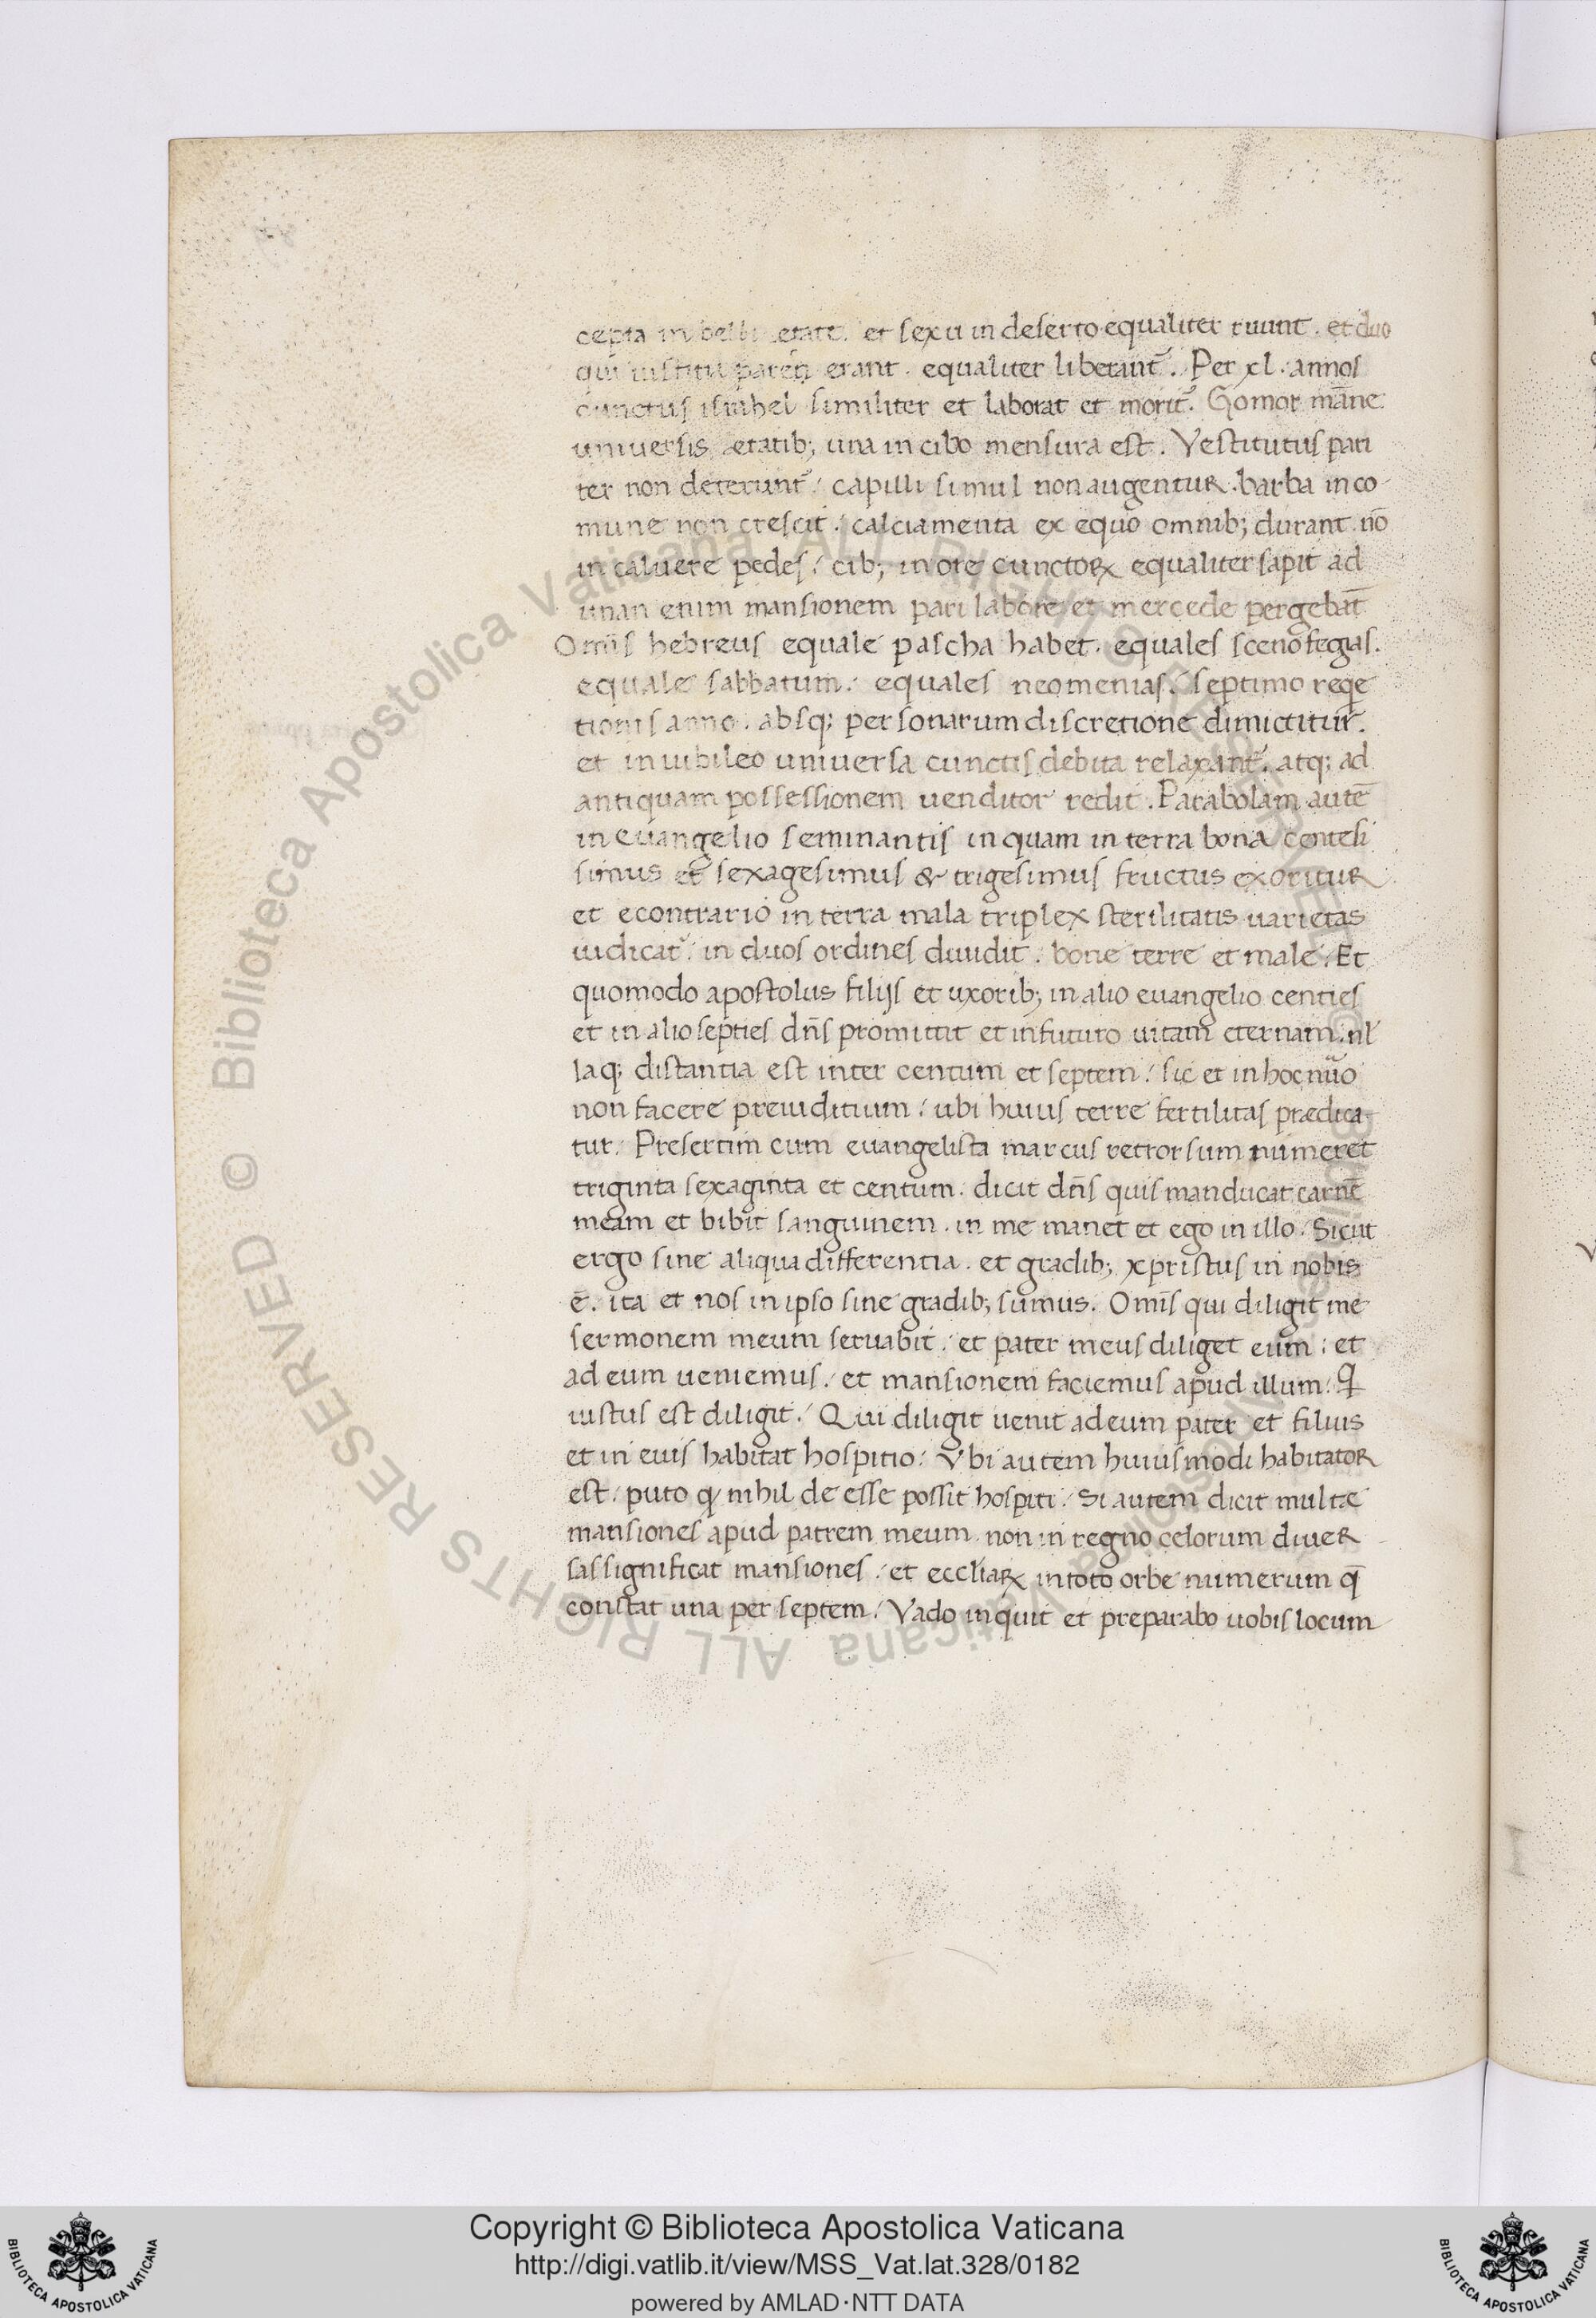 cepta in belli etate. et sexu in deserto equaliter ruunt. et duo
qui iustitia pares erant. equaliter liberant᷑. Per xl. annos
cunctus israhel similiter et laborat et morit᷑. Gomor mãne
uniuersis ætatib; una in cibo mensura est. Vestitutus pari
ter non deterunt᷑. capilli simul non augentur. barba in co
mune non crescit. calciamenta ex equo omnib; durant. nõ
in caluere pedes. cib; in ore cunctoꝝ equaliter sapit ad
unan enim mansionem pari labore et mercede pergebat̄
Omīs hebreus equale pascha habet. equales scenofegias.
equale sabbatum. equales neomenias. septimo reqe
tionis anno. absq; personarum discretione dimictitur.
et in iubileo uniuersa cunctis debita relaxant᷑. atq; ad
antiquam possessionem uenditor redit. Parabolam autē
in euangelio seminantis in quam in terra bona centesi
simus et sexagesimus & trigesimus fructus exoritur
et econtrario in terra mala triplex sterilitatis uarietas
iudicat᷑. in duos ordines diuidit. bone terre et male. Et
quomodo apostolus filijs et uxorib; in alio euangelio centies
et in alio septies dn̄s promittit et in futuro uitam eternam. nl̄
laq; distantia est inter centum et septem. sic et in hoc nūo
non facere preiuditium. ubi huius terre fertilitas prædica
tur. Presertim cum euangelista marcus retrorsum numeret
triginta sexaginta et centum. dicit dn̄s quis manducat carnē
meam et bibit sanguinem. in me manet et ego in illo. Sicut
ergo sine aliqua differentia. et gradib; xpristus in nobis
ē. ita et nos in ipso sine gradib; sumus. Omīs qui diligit me
sermonem meum seruabit. et pater meus diliget eum. et
ad eum ueniemus. et mansionem faciemus apud illum. Q
iustus est diligit. Qui diligit uenit ad eum pater et filius
et in euis habitat hospitio. Vbi autem huiusmodi habitator
est. puto ꝙ nihil de esse possit hospiti. Si autem dicit multæ
mansiones apud patrem meum. non in regno celorum diuer
sas significat mansiones. et eccl̄iaꝝ in toto orbe numerum q̄
constat una per septem. Vado inquit et preparabo uobis locum
Biblioteca Apostolica Vaticana ALL RIGHTS RESERVED ©
Copyright © Biblioteca Apostolica Vaticana
http://digi.vatlib.it/view/MSS_Vat.lat.328/0182
powered by AMLAD·NTT DATA
BIBLIOTECA APOSTOLICA VATICANA
BIBLIOTECA APOSTOLICA VATICANA